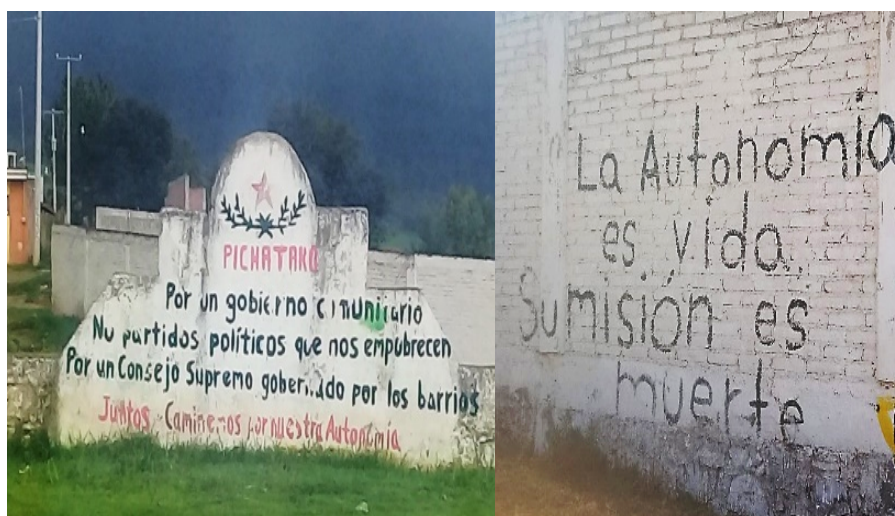 PICHATARO
Por un gobierno comunitario
No partidos políticos que nos empobrecen
Por un Consejo Supremo gobernado por los barrios
Juntos Caminemos por nuestra Autonomía
La Autonomía
es vida
Sumisión es
muerte